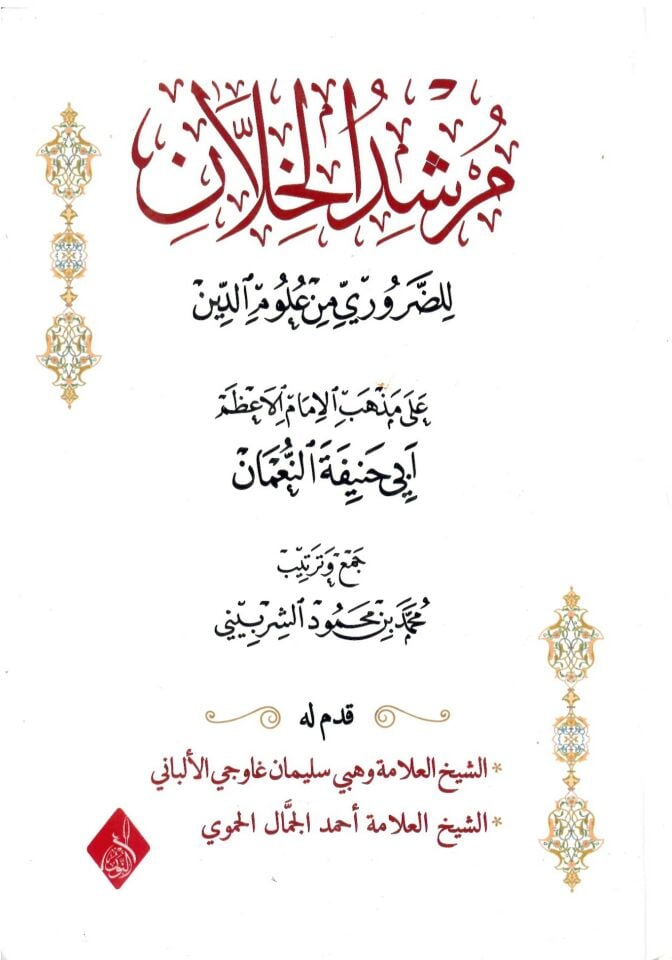 مُرْشِدُ الخِلَّانِ
لِلضَّرُورِيِّ مِنْ عُلُومِ الدِّينِ
عَلَى مَذْهَبِ الإِمَامِ الأَعْظَمِ
أَبِي حَنِيفَةَ النُّعْمَانْ
جَمْعُ وَتَرْتِيبُ
مُحَمَّد بْن مَحْمُود الشِّرْبِينِي
قدم له
* الشيخ العلامة وهبي سليمان غاوجي الألباني
* الشيخ العلامة أحمد الجمَّال الحموي